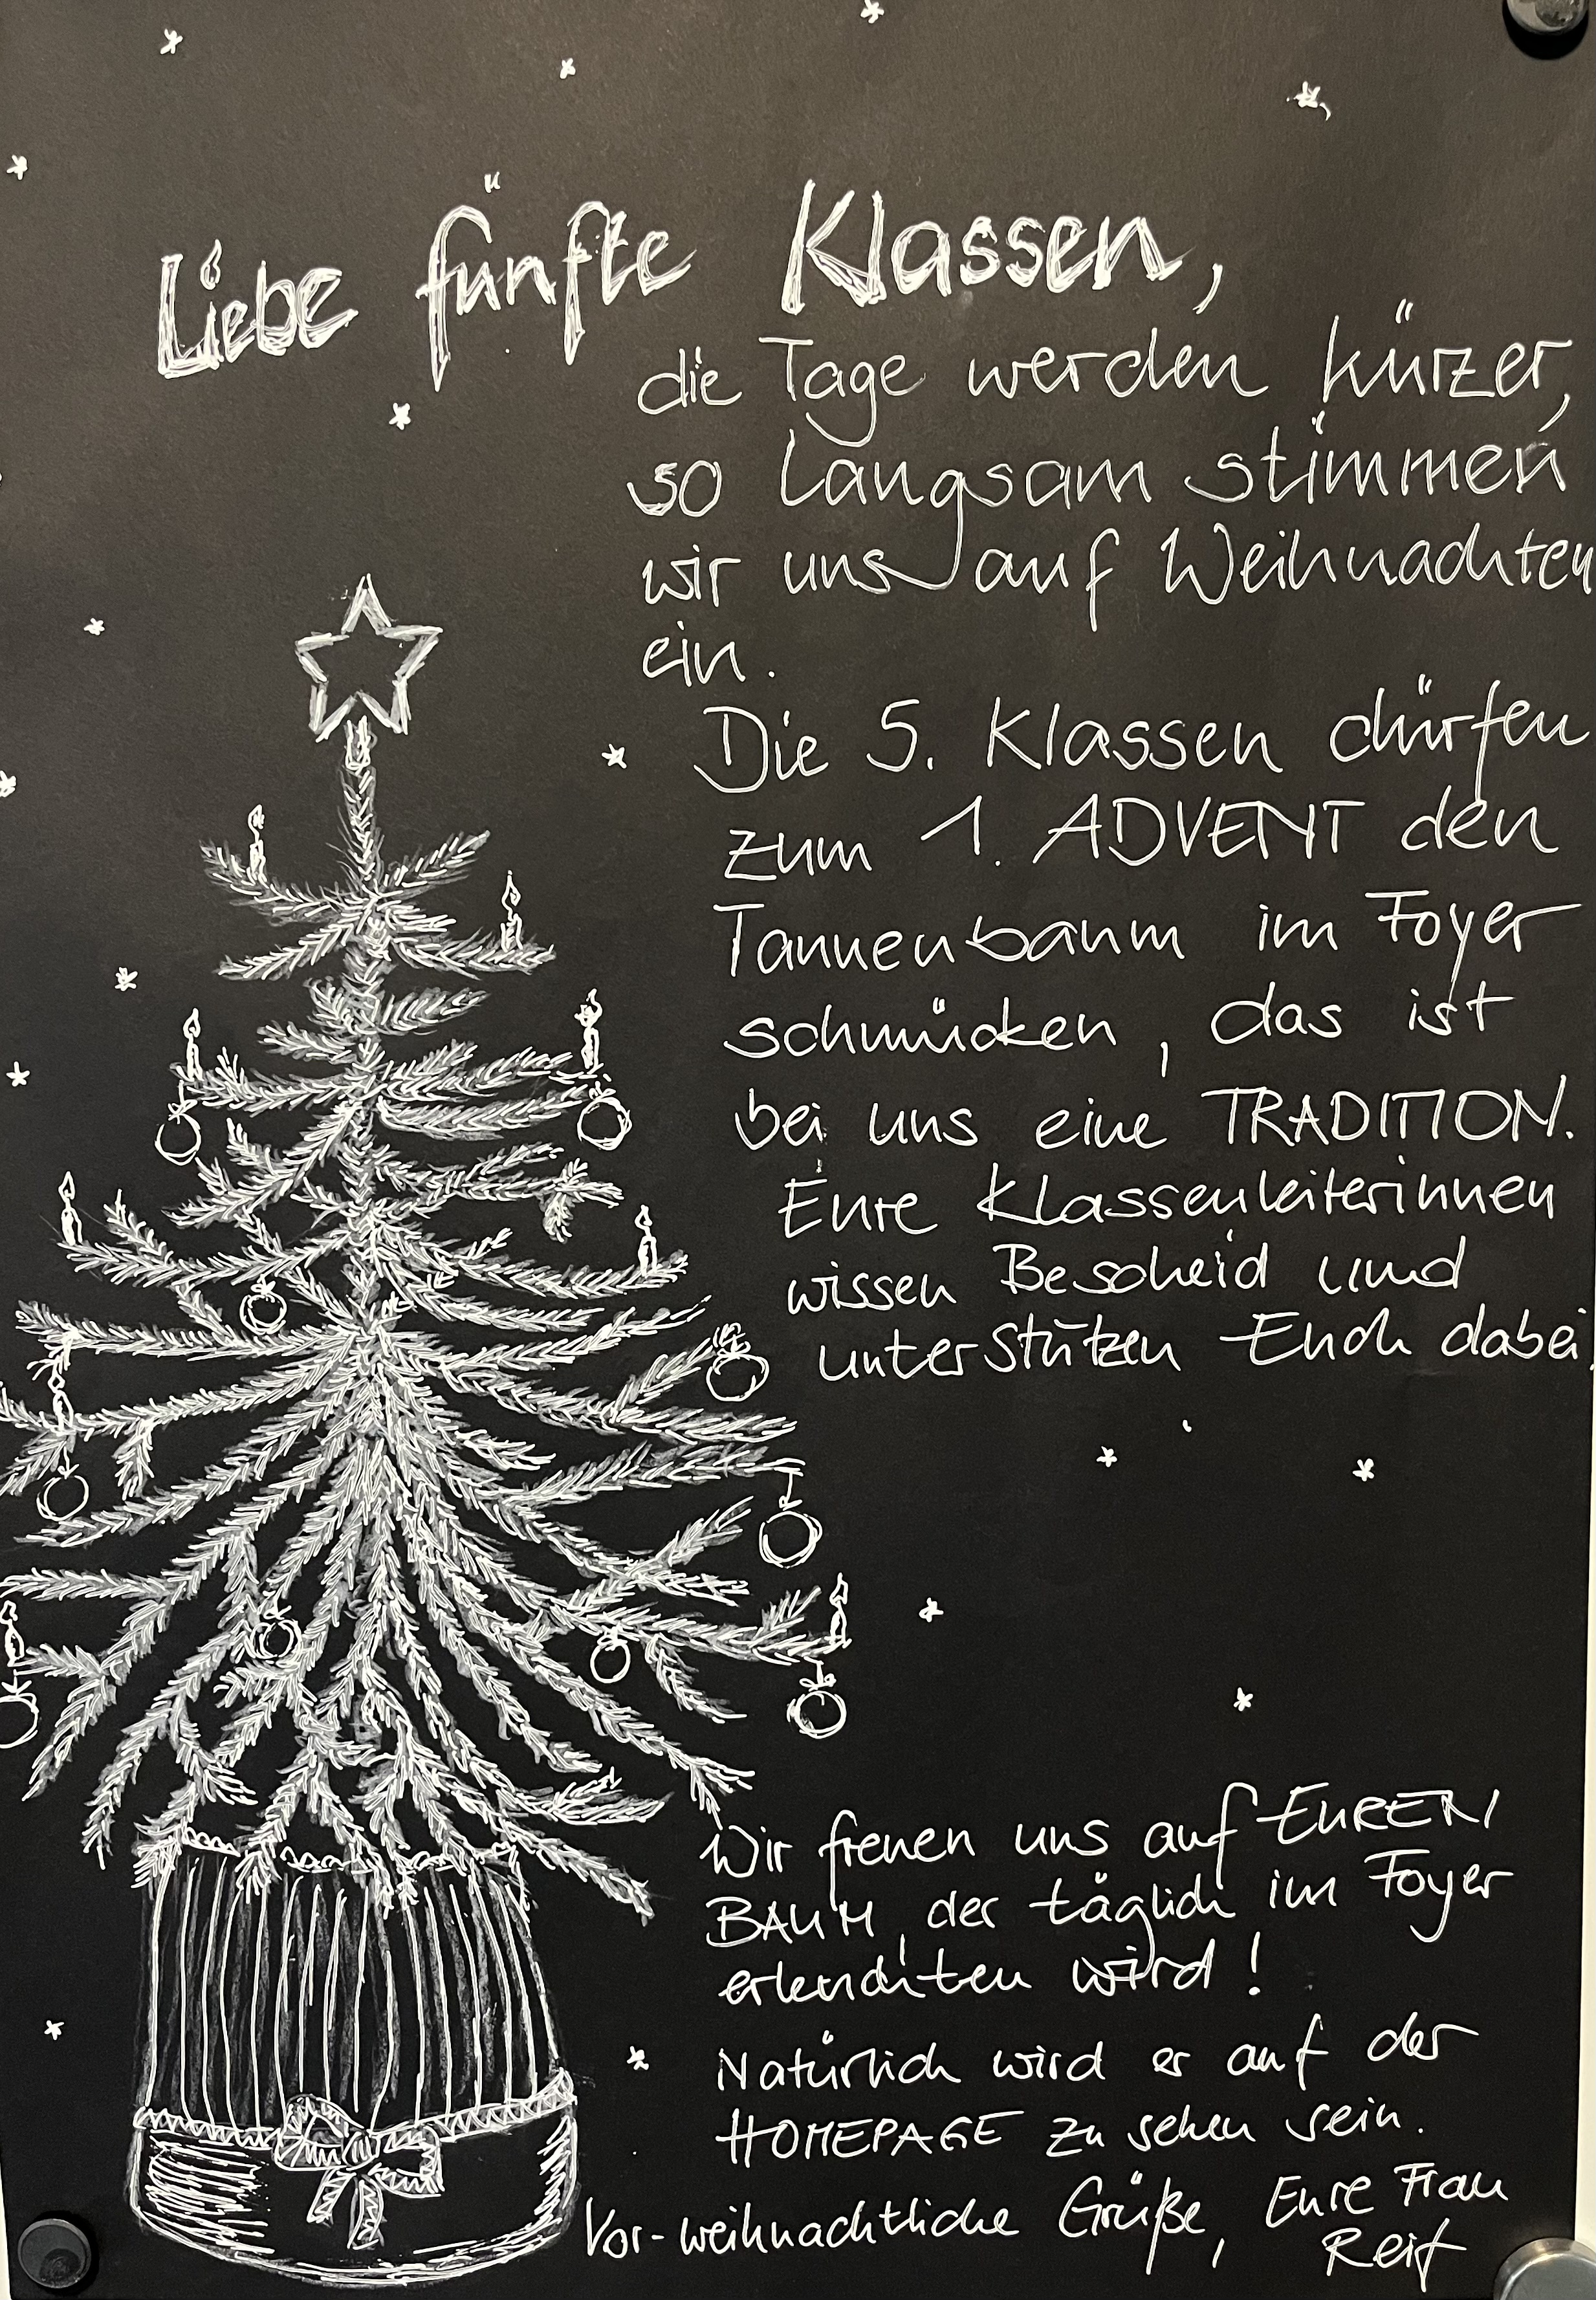 Liebe fünfte Klassen,
die Tage werden kürzer,
so langsam stimmen
wir uns auf Weihnachten
ein.
Die 5. Klassen dürfen
zum 1. ADVENT den
Tannenbaum im Foyer
schmücken, das ist
bei uns eine TRADITION.
Eure Klassenleiterinnen
wissen Bescheid und
unterstützen Euch dabei.
Wir freuen uns auf EUREN
BAUM, der täglich im Foyer
erleuchten wird!
Natürlich wird er auf der
HOMEPAGE zu sehen sein.
Vor-weihnachtliche Grüße, Eure Frau
Reif